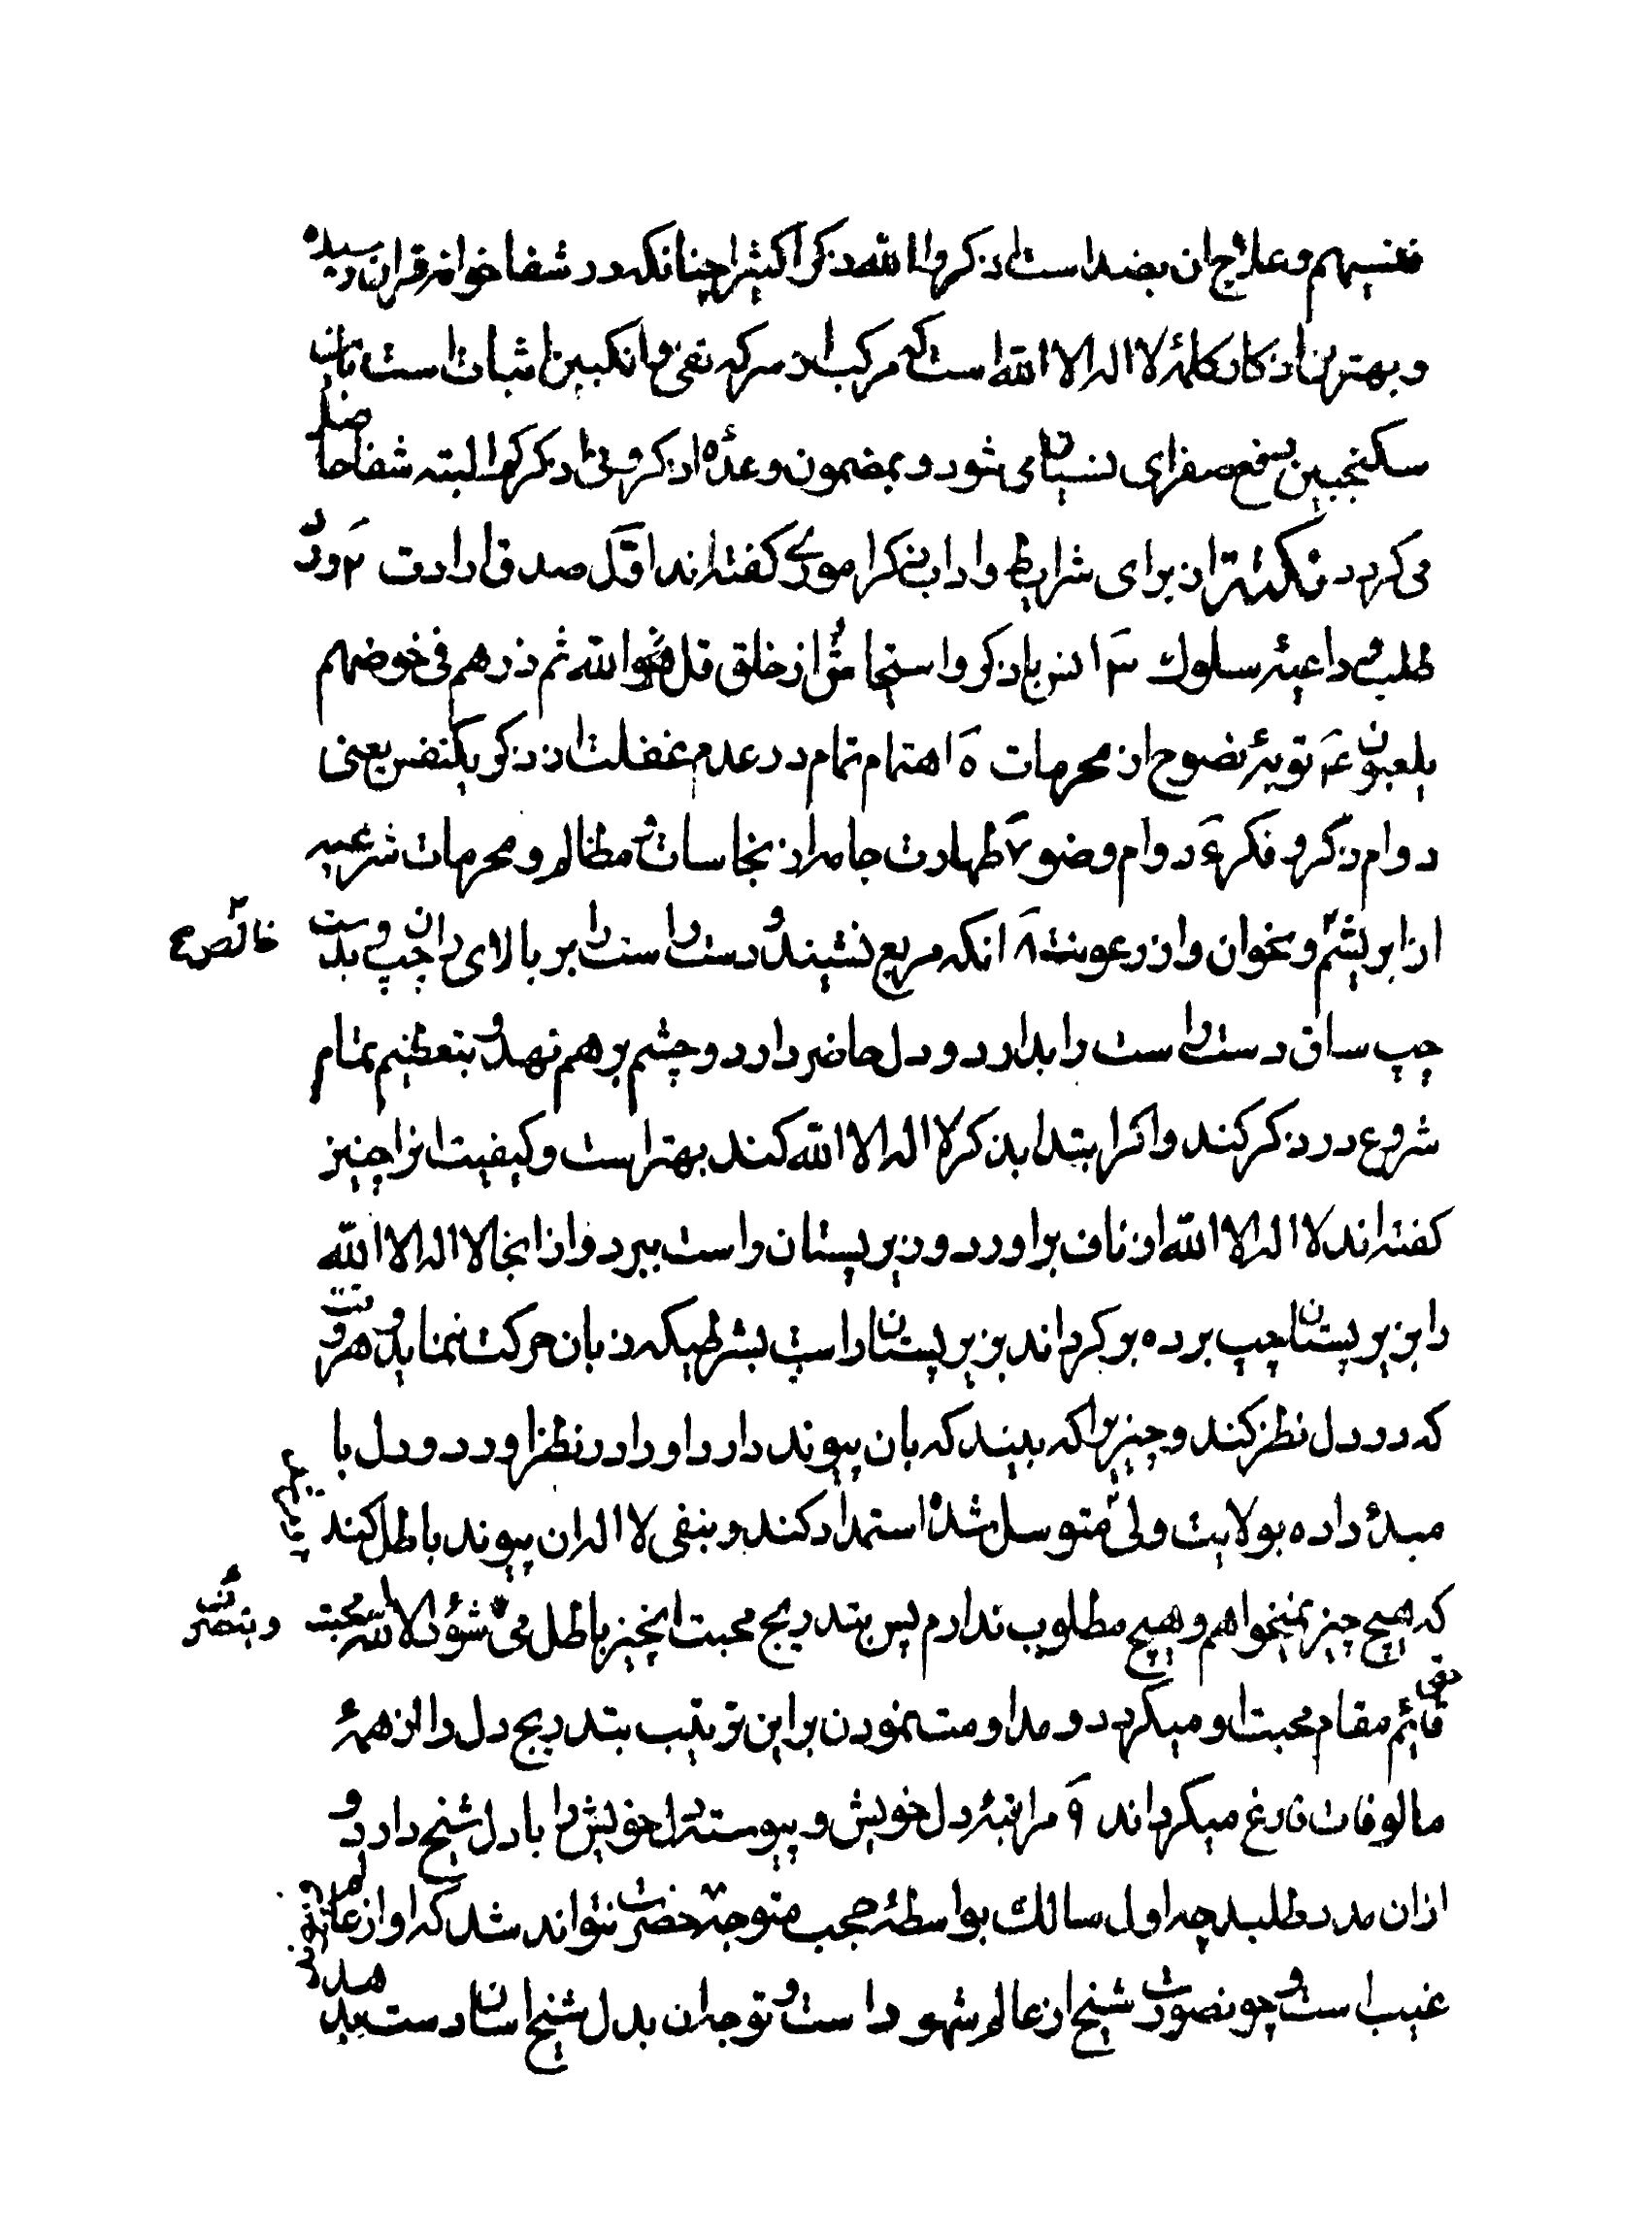 فنسیهم و علاج ان بضد است اذکروا الله ذکرا کثیرا چنانکه در شفا خانه قران رسیده
و بهترین اذکار کلمهٔ لا اله الا الله است که مرکب از سرکه نفی و انکبین اثبات است باین
سکنجبین دفع صفرای نسیان می شود و بمضمون وعدهٔ اذکرونی اذکرکم البته شفا حاصل
می کردد نکته از برای شرایط و اداب ذکر اموری گفته اند اوّل صدق ارادت ۲ درد
طلب و داعیهٔ سلوک ۳ انس با ذکر و استیحاش از خلق قل الله ثم ذرهم فی خوضهم
یلعبون ۴ توبهٔ نصوح از محرمات ۵ اهتمام تمام در عدم غفلت از ذکر یکنفس یعنی
دوام ذکر و فکر ۶ دوام وضو ۷ طهارت جامه از نجاسات و مظالم و محرمات شرعیه
از ابریشم و نحو ان و از رعونت ۸ انکه مربع نشیند و دست راست را بر بالای ران چپ و بدست
خالص
چپ ساق دست راست را بدارد و دل حاضر دارد و چشم بر هم نهد و بتعظیم تمام
شروع در ذکر کند و اکر ابتدا بذکر لا اله الا الله کند بهتر است و کیفیت انرا چنین
کفته اند لا اله الا الله از ناف براورد و زیر پستان راست ببرد و از انجا لا اله الا الله
را بزیر پستان چپ برده بر کرداند بزیر پستان راست بشرطیکه زبان حرکت ننماید و هر وقت
که در دل نظر کند و چیزیرا که بیند که بان پیوند دارد او را در نظر اورد و دل با
مبدء داده بولایت ولی متوسل شده استمداد کند و بنفی لا اله ان پیوند باطل کند
که هیچ چیز نمیخواهم و هیچ مطلوب ندارم پس بتدریج محبت انچیز باطل می شود و الا الله محبت
و بتصرف
قائم مقام محبت او میکردد و مداومت نمودن بر این ترتیب بتدریج دل را از همهٔ
حق
مالوفات فارغ میکرداند ۹ مراقبهٔ دل خویش و پیوسته دل خویش را با دل شیخ دارد و
از ان مدد طلبد چه اول سالک بواسطهٔ حجب متوجه حضرت نتواند شد که او از عالم
غیب است و چون صورت شیخ از عالم شهود است و توجه ان بدل شیخ اسان دست بدهد